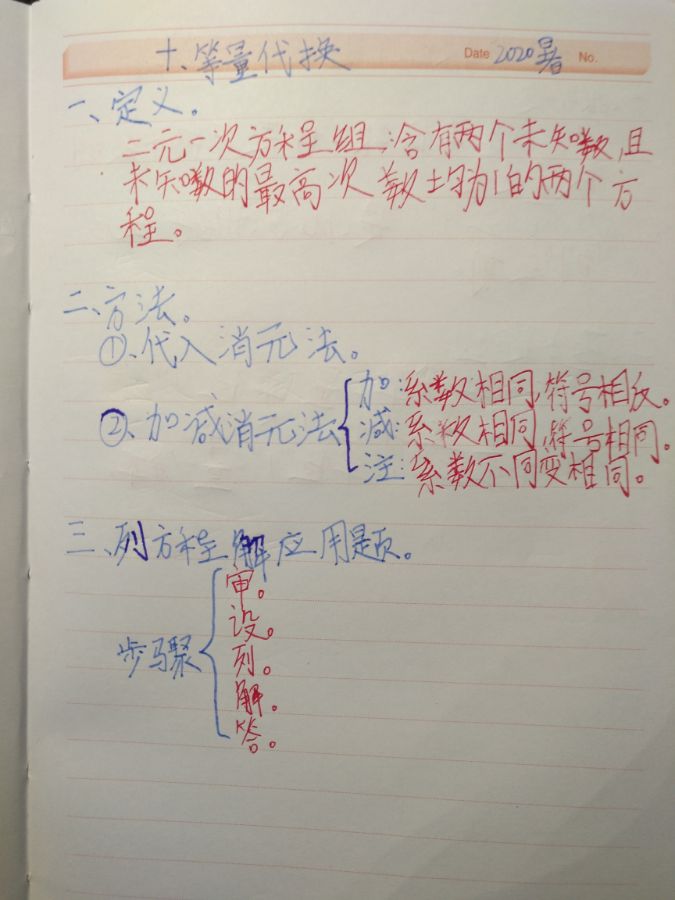 十、等量代换 Date 2020暑 No.
一、定义。
二元一次方程组:含有两个未知数,且
未知数的最高次数均为1的两个方
程。
二、方法。
①、代入消元法。
加:系数相同,符号相反。
②、加减消元法 减:系数相同,符号相同。
注:系数不同变相同。
三、列方程解应用题。
审。
设。
步骤 列。
解。
答。